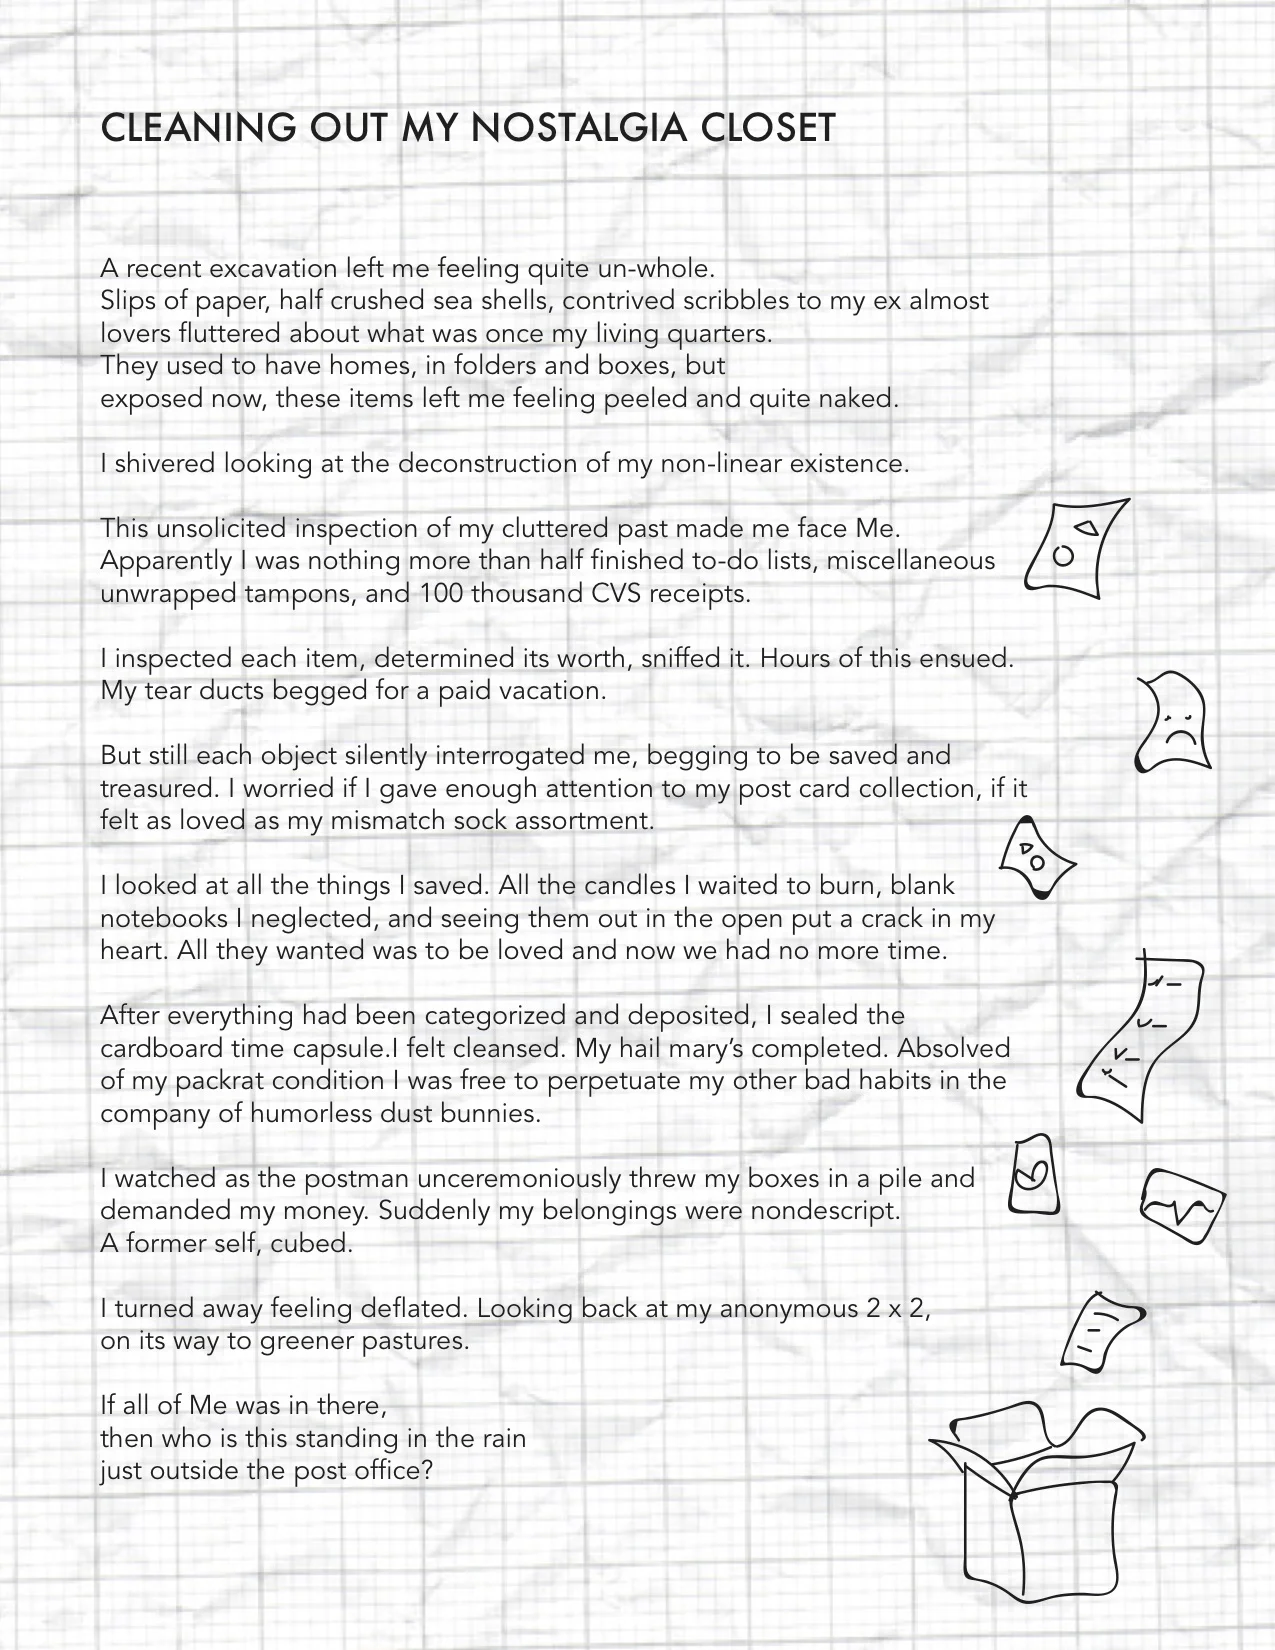 CLEANING OUT MY NOSTALGIA CLOSET
A recent excavation left me feeling quite un-whole.
Slips of paper, half crushed sea shells, contrived scribbles to my ex almost
lovers fluttered about what was once my living quarters.
They used to have homes, in folders and boxes, but
exposed now, these items left me feeling peeled and quite naked.
I shivered looking at the deconstruction of my non-linear existence.
This unsolicited inspection of my cluttered past made me face Me.
Apparently I was nothing more than half finished to-do lists, miscellaneous
unwrapped tampons, and 100 thousand CVS receipts.
I inspected each item, determined its worth, sniffed it. Hours of this ensued.
My tear ducts begged for a paid vacation.
But still each object silently interrogated me, begging to be saved and
treasured. I worried if I gave enough attention to my post card collection, if it
felt as loved as my mismatch sock assortment.
I looked at all the things I saved. All the candles I waited to burn, blank
notebooks I neglected, and seeing them out in the open put a crack in my
heart. All they wanted was to be loved and now we had no more time.
After everything had been categorized and deposited, I sealed the
cardboard time capsule.I felt cleansed. My hail mary's completed. Absolved
of my packrat condition I was free to perpetuate my other bad habits in the
company of humorless dust bunnies.
I watched as the postman unceremoniously threw my boxes in a pile and
demanded my money. Suddenly my belongings were nondescript.
A former self, cubed.
I turned away feeling deflated. Looking back at my anonymous 2 x 2,
on its way to greener pastures.
If all of Me was in there,
then who is this standing in the rain
just outside the post office?